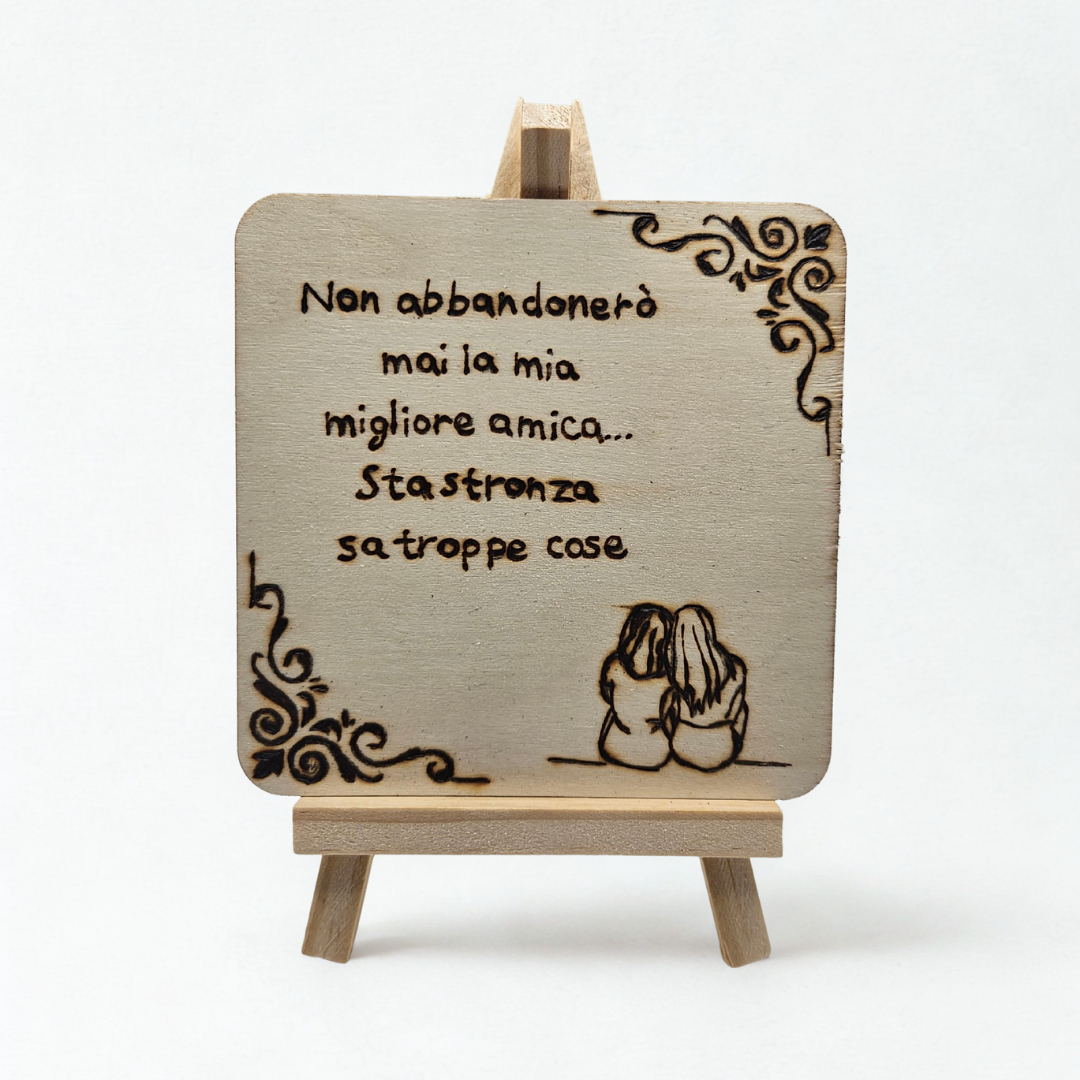 Non abbandonerò
mai la mia
migliore amica...
Sta stronza
sa troppe cose